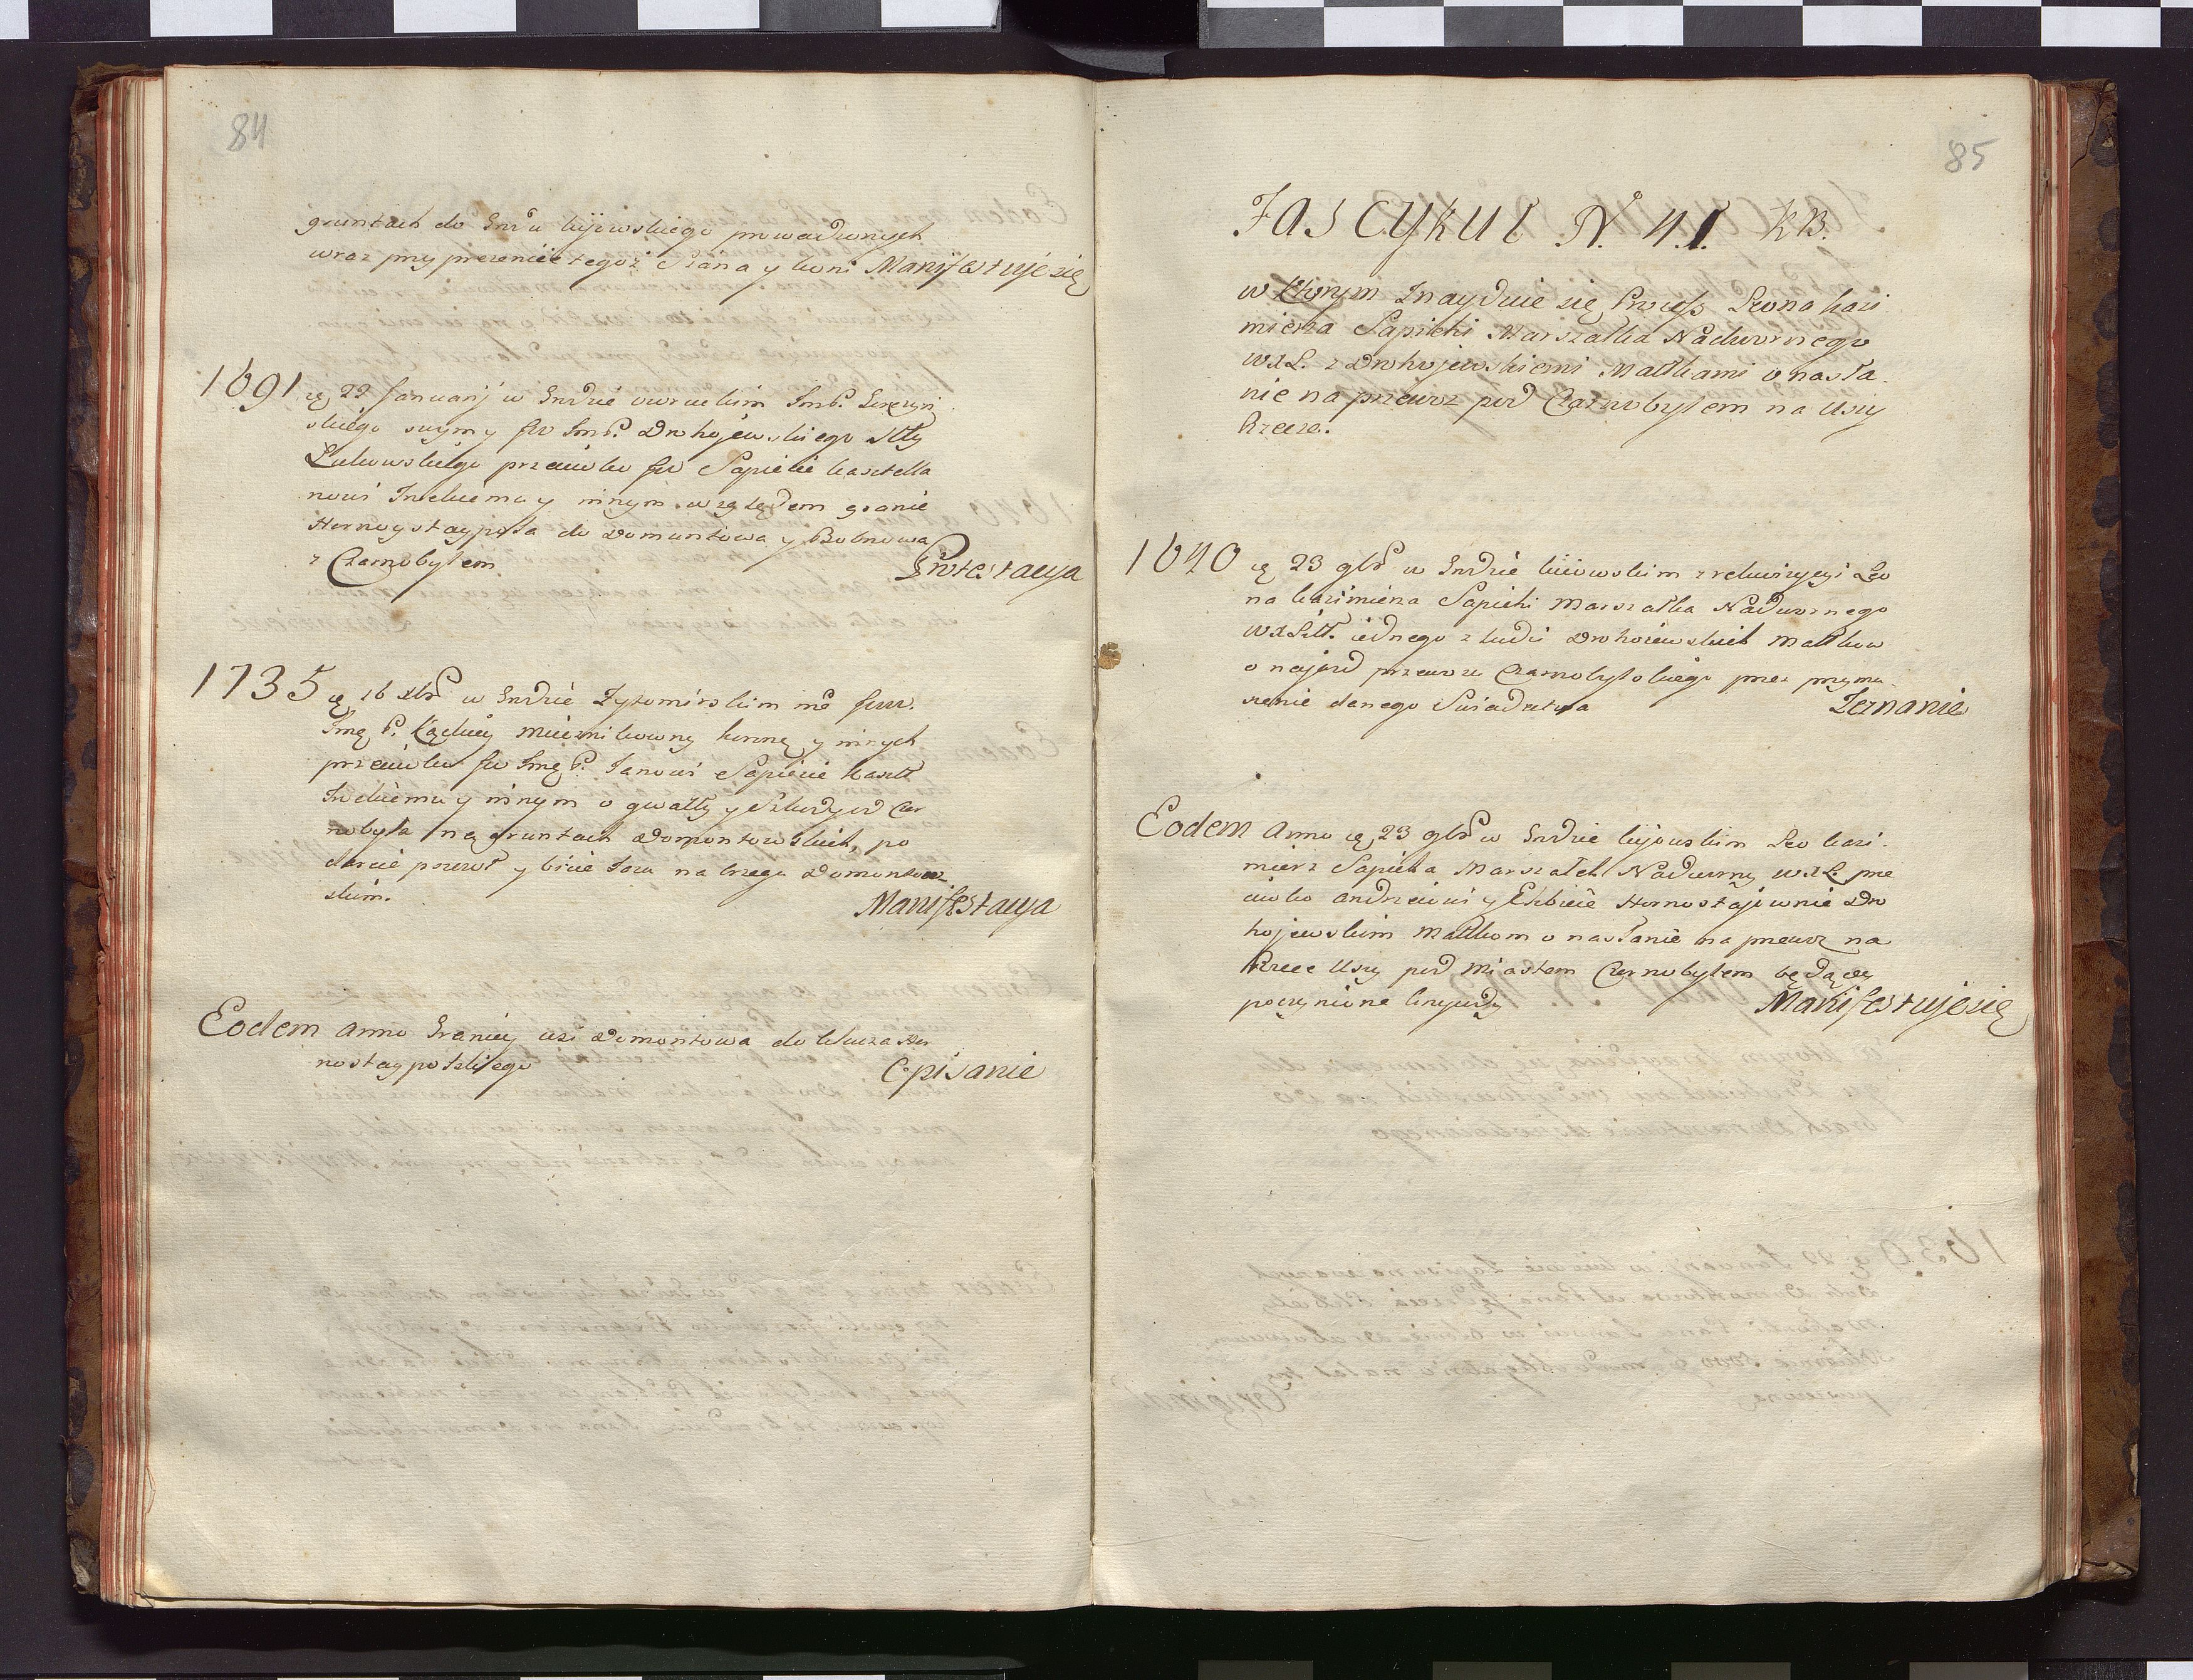 84
gruntach do Grodu kijowskiego prowadzonych
wraz przy prezencie tegoż Siana y koni Manifestuje się
1691 ę 22 Januarij w Grodzie owruckim Jmć P.
skiego sługy Jw Jmć P. Drohojewskiego Stty
Łukowskiego przeciwko Jw Sapieże kasztella
nowi Trockiemu y innym względem granic
Hornostaypola do Domuntowa y Bobrowa
z Czarnobylem Protestacya
1735 ę 16 Xbr w Grodzie Żytomirskim
Jmę P. Miecznikowny y innych
przeciwko Jw Jmę P. Janowi Sapieże kaszt.
Trockiemu y innym o gwałty y Szkody od Czer
nobyla na gruntach Domontowskich, po
darcie pozwow y bicie Jazu na brzegu Domontow-
skim. Manifestacya
Eodem Anno Granicy wsi Domontowa do klucza Hor
nostaypolskiego Opisanie
85
Fascykuł N. 41. KB.
w ktorym Znayduie się Process Leona Kazi
mierza Sapiehi Marszałka Nadwornego
WXL. z Drohojewskiemi Małkami o nasła-
nie na przewoz pod Czarnobylem na Uszy
Rzece.
1640 ę 23 9br w Grodzie kiiowskim z rekwizycyi Leo
na Kazimierza Sapiehi Marszałka Nadwornego
WXLitt. iednego z ludzi Drohoiewskich Małkow
o najazd przewozu Czarnobylskiego przez przymu
szenie danego Swiadectwa Zeznanie
Eodem Anno ę 23 9br w Grodzie kijowskim Leo Kazi-
mierz Sapieha Marszałek Nadworny WXL. prze
ciwko Andrzeiowi y Elzbiecie Hornostajewnie Dro
hojewskim Małkom o nasłanie na przewoz na
Rzece Uszy pod Miastem Czernobylem będący
poczynione krzywdy Manifestuje się